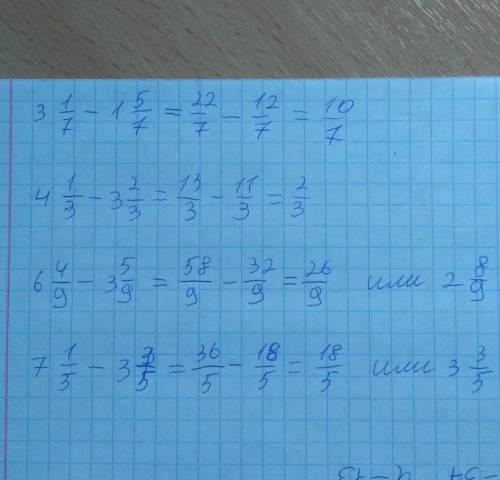 3 1/7 − 1 5/7 = 22/7 − 12/7 = 10/7
4 1/3 − 3 2/3 = 13/3 − 11/3 = 2/3
6 4/9 − 3 5/9 = 58/9 − 32/9 = 26/9 или 2 8/9
7 1/5 − 3 3/5 = 36/5 − 18/5 = 18/5 или 3 3/5